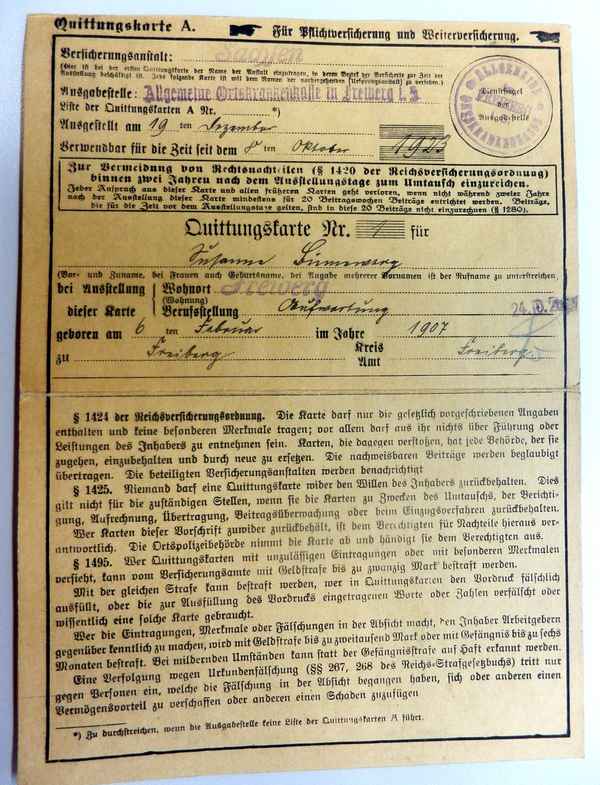 Quittungskarte A. Für Pflichtversicherung und Weiterversicherung.
Versicherungsanstalt: Sachsen
(Hier ist bei der ersten Quittungskarte der Name der Anstalt einzutragen, in deren Bezirk der Versicherte zur Zeit der
Ausstellung beschäftigt ist. Jede folgende Karte ist mit dem Namen der vorhergehenden (Ursprungsanstalt) zu versehen.)
Ausgabestelle: Allgemeine Ortskrankenkasse in Freiberg i. S.
Liste der Quittungskarten A Nr. *)
Ausgestellt am 19 ten Dezember
Verwendbar für die Zeit seit dem 8 ten Oktober 1923
ALLGEMEINE ORTSKRANKENKASSE FREIBERG
Dienstsiegel
der
Ausgabestelle
Zur Vermeidung von Rechtsnachteilen (§ 1420 der Reichsversicherungsordnung)
binnen zwei Jahren nach dem Ausstellungstage zum Umtausch einzureichen.
Jeder Anspruch aus dieser Karte und allen früheren Karten geht verloren, wenn nicht während zweier Jahre
nach der Ausstellung dieser Karte mindestens für 20 Beitragswochen Beiträge entrichtet werden. Beiträge,
die für die Zeit vor dem Ausstellungstage gelten, sind in diese 20 Beiträge nicht einzurechnen (§ 1280).
Quittungskarte Nr. 1 für
Susanne
(Vor- und Zuname, bei Frauen auch Geburtsname, bei Angabe mehrerer Vornamen ist der Rufname zu unterstreichen.
bei Ausstellung Wohnort Freiberg
(Wohnung)
dieser Karte Berufsstellung Aufwartung
24. 10.
geboren am 6 ten Februar im Jahre 1907
zu Freiberg Kreis Freiberg
Amt
§ 1424 der Reichsversicherungsordnung. Die Karte darf nur die gesetzlich vorgeschriebenen Angaben
enthalten und keine besonderen Merkmale tragen; vor allem darf aus ihr nichts über Führung oder
Leistungen des Inhabers zu entnehmen sein. Karten, die dagegen verstoßen, hat jede Behörde, der sie
zugehen, einzubehalten und durch neue zu ersetzen. Die nachweisbaren Beiträge werden beglaubigt
übertragen. Die beteiligten Versicherungsanstalten werden benachrichtigt
§ 1425. Niemand darf eine Quittungskarte wider den Willen des Inhabers zurückbehalten. Dies
gilt nicht für die zuständigen Stellen, wenn sie die Karten zu Zwecken des Umtauschs, der Berichti-
gung, Aufrechnung, Übertragung, Beitragsüberwachung oder beim Einzugsverfahren zurückbehalten.
Wer Karten dieser Vorschrift zuwider zurückbehält, ist dem Berechtigten für Nachteile hieraus ver-
antwortlich. Die Ortspolizeibehörde nimmt die Karte ab und händigt sie dem Berechtigten aus.
§ 1495. Wer Quittungskarten mit unzulässigen Eintragungen oder mit besonderen Merkmalen
versieht, kann vom Versicherungsamte mit Geldstrafe bis zu zwanzig Mark bestraft werden.
Mit der gleichen Strafe kann bestraft werden, wer in Quittungskarten den Vordruck fälschlich
ausfüllt, oder die zur Ausfüllung des Vordrucks eingetragenen Worte oder Zahlen verfälscht oder
wissentlich eine solche Karte gebraucht.
Wer die Eintragungen, Merkmale oder Fälschungen in der Absicht macht, den Inhaber Arbeitgebern
gegenüber kenntlich zu machen, wird mit Geldstrafe bis zu zweitausend Mark oder mit Gefängnis bis zu sechs
Monaten bestraft. Bei mildernden Umständen kann statt der Gefängnisstrafe auf Haft erkannt werden.
Eine Verfolgung wegen Urkundenfälschung (§§ 267, 268 des Reichs-Strafgesetzbuchs) tritt nur
gegen Personen ein, welche die Fälschung in der Absicht begangen haben, sich oder anderen einen
Vermögensvorteil zu verschaffen oder anderen einen Schaden zuzufügen
*) Zu durchstreichen, wenn die Ausgabestelle keine Liste der Quittungskarten A führt.